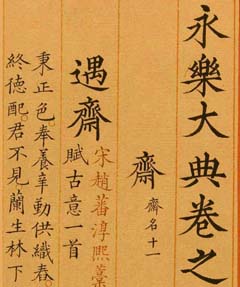 永樂大典卷之
齋 齋名十一
遇齋 宋趙蕃淳熙藁
賦古意一首
秉正色奉養辛勤供織舂
終德配君不見蘭生林下